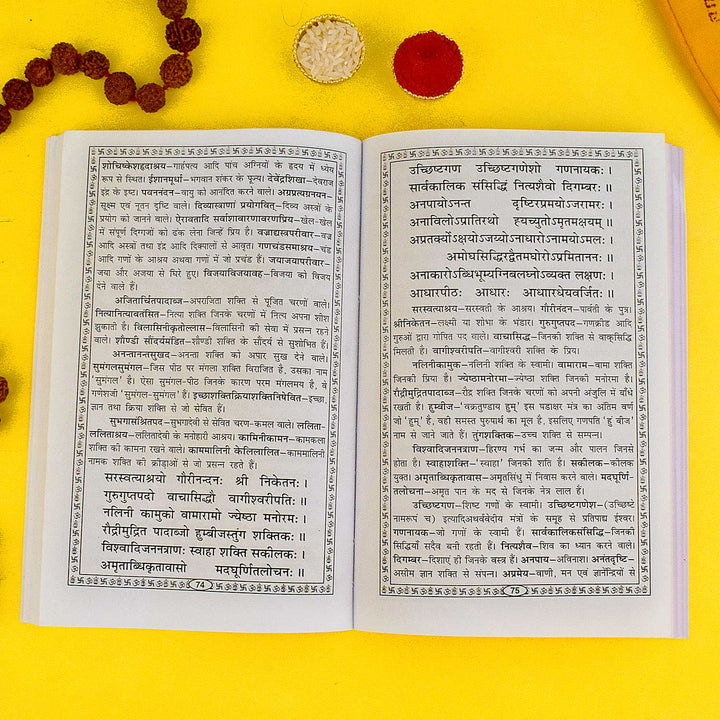 शोचिष्केशहृदाश्रय—गार्हपत्य आदि पांच अग्नियों के हृदय में ध्येय
रूप से स्थित। ईशानमूर्धा—भगवान शंकर के पूज्य। देवेंद्रशिखा—देवराज
इंद्र के इष्ट। पवननंदन—वायु को आनन्दित करने वाले। अग्रप्रत्यग्रनयन—
सूक्ष्म एवं नूतन दृष्टि वाले। दिव्यास्त्राणां प्रयोगवित्—दिव्य अस्त्रों के
प्रयोग को जानने वाले। ऐरावतादि सर्वाशावारणावरणप्रिय—खेल-खेल
में संपूर्ण दिग्गजों को ढंक लेना जिन्हें प्रिय है। वज्राद्यस्त्रपरीवार—वज्र
आदि अस्त्रों तथा इंद्र आदि दिक्पालों से आवृत। गणचंडसमाश्रय—चंड
आदि गणों के आश्रय अथवा गणों में जो प्रचंड हैं। जयाजयापरीवार—
जया और अजया से घिरे हुए। विजयाविजयावह—विजया को विजय
देने वाले हैं।
अजितार्चितपादाब्ज—अपराजिता शक्ति से पूजित चरणों वाले।
नित्यानित्यावतंसित—नित्या शक्ति जिनके चरणों में नित्य अपना शोश
झुकाती है। विलासिनीकृतोल्लास—विलासिनी की सेवा में प्रसन्न रहने
वाले। शौण्डी सौंदर्यमंडित—शौण्डी शक्ति के सौंदर्य से सुशोभित हैं।
अनन्तानन्तसुखद—अनन्ता शक्ति को अपार सुख देने वाले।
सुमंगलसुमंगल—जिस पीठ पर मंगला शक्ति विराजित है, उसका नाम
'सुमंगल' है। ऐसा सुमंगल-पीठ जिनके कारण परम मंगलमय है, वे
गणेशजी 'सुमंगल-सुमंगल' हैं। इच्छाशक्तिक्रियाशक्तिनिषेवित—इच्छा
ज्ञान तथा क्रिया शक्ति से जो सेवित हैं।
सुभगासंश्रितपद—सुभगादेवी से सेवित चरण-कमल वाले। ललिता-
ललिताश्रय—ललितादेवी के मनोहारी आश्रय। कामिनीकामन—कामकला
शक्ति की कामना रखने वाले। काममालिनी केलिलालित—काममालिनी
नामक शक्ति की क्रीड़ाओं से जो प्रसन्न रहते हैं।
सरस्वत्याश्रयो गौरीनन्दनः श्री निकेतनः।
गुरुगुप्तपदो वाचासिद्धौ वागीश्वरीपतिः॥
नलिनी कामुको वामारामो ज्येष्ठा मनोरमः।
रौद्रीमुद्रित पादाब्जो हुम्बीजस्तुंग शक्तिकः॥
विश्वादिजननत्राणः स्वाहा शक्ति सकीलकः।
अमृताब्धिकृतावासो मदघूर्णितलोचनः॥
74
उच्छिष्टगण उच्छिष्टगणेशो गणनायकः।
सार्वकालिक संसिद्धि नित्यशैवो दिगम्बरः॥
अनपायोऽनन्त दृष्टिरप्रमयोऽजरामरः।
अनाविलोऽप्रातिरथो ह्यच्युतोऽमृतमक्षयम्॥
अप्रतर्क्योऽक्षयोऽजय्योऽनाधारोऽनामयोऽमलः।
अमोघसिद्धिरद्वैतमघोरोऽप्रमिताननः॥
अनाकारोऽब्धिभूम्यग्निबलघ्नोऽव्यक्त लक्षणः।
आधारपीठः आधारः आधााराधेयवर्जितः॥
सरस्वत्याश्रय—सरस्वती के आश्रय। गौरीनंदन—पार्वती के पुत्र।
श्रीनिकेतन—लक्ष्मी या शोभा के भंडार। गुरुगुप्तपद—गणक्रीड आदि
गुरुओं द्वारा गोपित पद वाले। वाचासिद्धि—जिनकी शक्ति से वाक्‌सिद्धि
मिलती है। वागीश्वरीपति—वागीश्वरी शक्ति के प्रिय।
नलिनीकामुक—नलिनी शक्ति के स्वामी। वामाराम—वामा शक्ति
जिनकी प्रिया है। ज्येष्ठामनोरमा—ज्येष्ठा शक्ति जिनकी मनोरमा है।
रौद्रीमुद्रितपादाब्ज—रौद्र शक्ति जिनके चरणों को अपनी अंजुल में बाँधे
रखती है। हुम्बीज—'वक्रतुण्डाय हुम्' इस षडाक्षर मंत्र का अंतिम वर्ण
जो 'हुम्' है, वही समस्त पुरुषार्थ का मूल है, इसलिए गणपति 'हुं बीज'
नाम से जाने जाते हैं। तुंगशक्तिक—उच्च शक्ति से सम्पन्न।
विश्वादिजननत्राण—हिरण्य गर्भ का जन्म और पालन जिनसे
होता है। स्वाहाशक्ति—'स्वाहा' जिनकी शति है। सकीलक—कीलक
युक्त। अमृताब्धिकृतावास—अमृतसिंधु में निवास करने वाले। मदघूर्णि-
तलोचना—अमृत पान के मद से जिनके नेत्र लाल हैं।
उच्छिष्टगण—शिष्ट गणों के स्वामी। उच्छिष्टगणेश-(उच्छिष्टे
नामरूपं च) इत्यादिअथर्ववेदीय मंत्रों के समूह से प्रतिपाद्य ईश्वर।
गणनायक—जो गणों के स्वामी हैं। सार्वकालिकसंसिद्धि—जिनकी
सिद्धियाँ सदैव बनी रहती हैं। नित्यशैव—शिव का ध्यान करने वाले।
दिगम्बर—दिशाएं हो जिनके वस्त्र हैं। अनपाय—अविनाश। अनंतदृष्टि—
असीम ज्ञान शक्ति से संपन्न। अप्रमेय—वाणी, मन एवं ज्ञानेन्द्रियों से
75